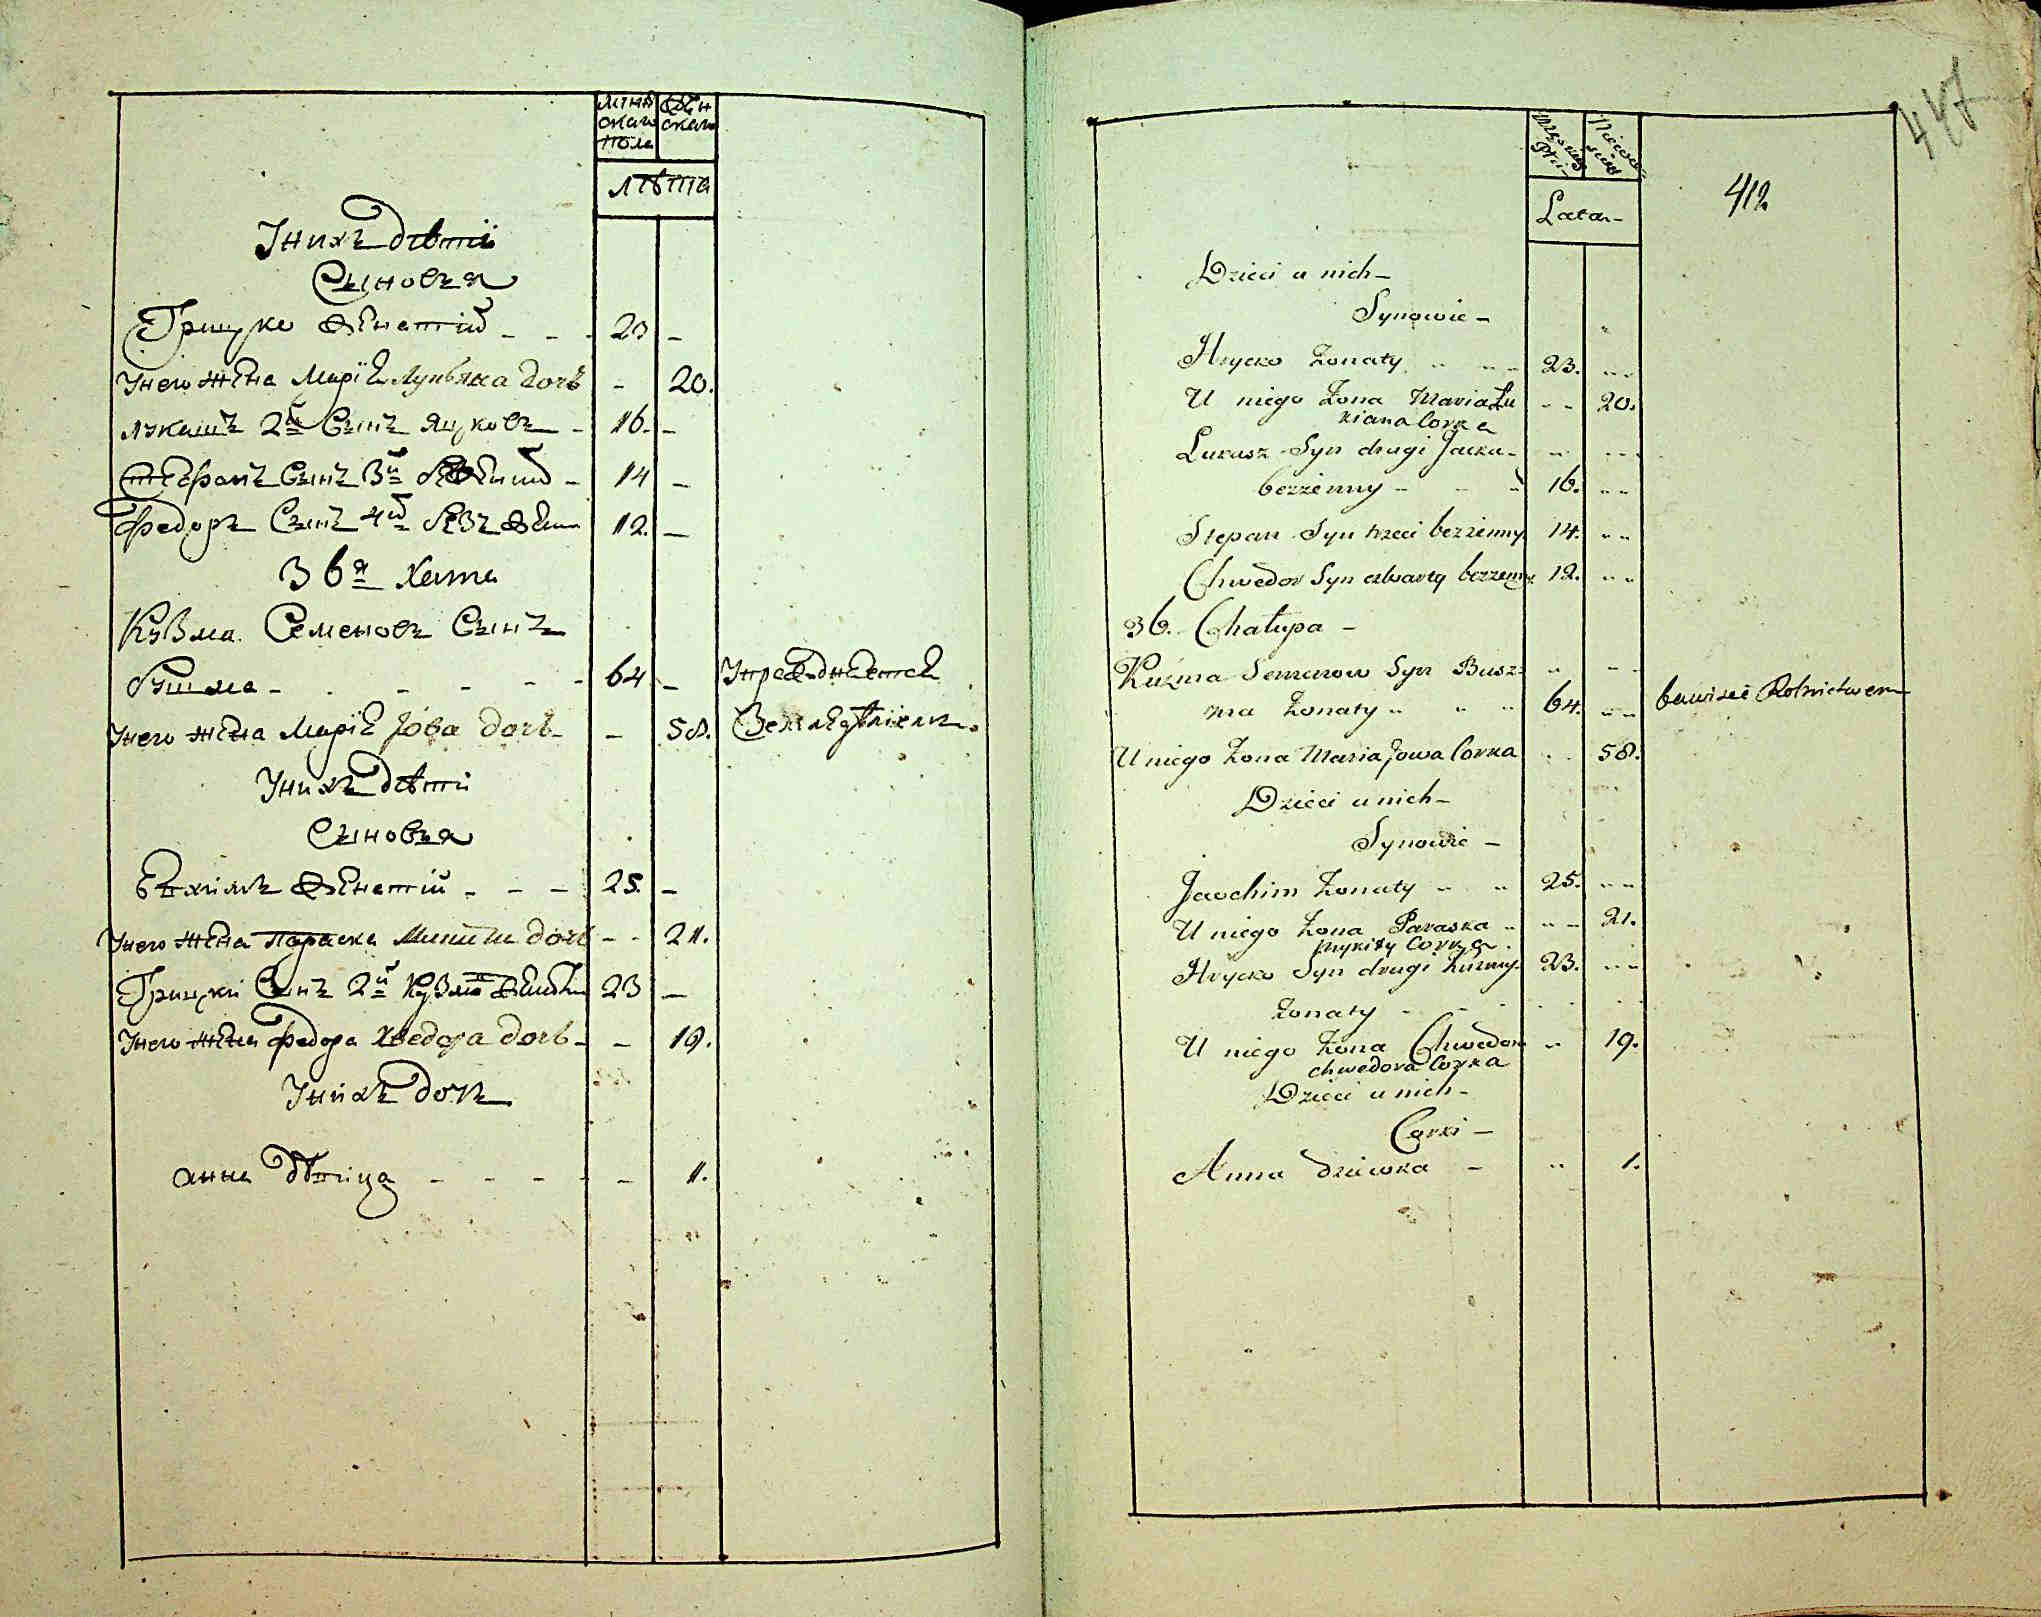 мужскаго женскаго
пола
лѣта
У нихъ дѣти
Сыновья
Грицко женатій 23
У него жена Марія Лукьяна дочь 20.
Лукашъ 2й Сынъ Яцковъ 16.
Стефанъ Сынъ 3й 14
Федоръ Сынъ 4й 12.
36я хата
Кузма Семеновъ Сынъ
Бушма 64
У него жена Марія Іова дочь 58.
У нихъ дѣти
Сыновья
женатій 25.
У него жена Параска Микиты дочь 21.
Грицко Сынъ 2й Кузмы 23
У него жена Федора Хведора дочь 19.
У нихъ дочь
Анна дѣвица 1.
447
412
Lata
Dzieci u nich
Synowie
Hrycko Żonaty 23.
U niego Żona Maria Łu 20.
kiana Corka
Łukasz Syn drugi Jacka
bezżenny 16.
Stepan Syn trzeci bezżenny 14.
Chwedor Syn czwarty bezżenny 12.
36. Chałupa
Kuźma Semenow Syn Busz
ma Żonaty 64. bawi się Rolnictwem
U niego Żona Maria Jowa Corka 58.
Dzieci u nich
Synowie
Jaochim Żonaty 25.
U niego Żona Paraska 21.
Mykity Corka
Hrycko Syn drugi Kuźmy 23.
Żonaty
U niego Żona Chwedora 19.
Chwedora Corka
Dzieci u nich
Corki
Anna dziewka 1.